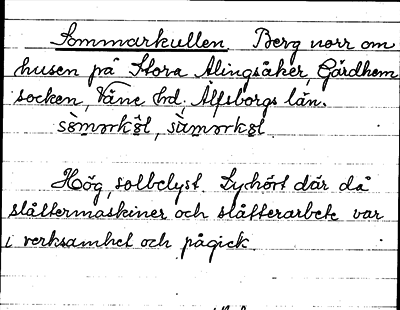 Sommarkullen Berg norr om
husen på Stora Alingsåker, Gärdhem
socken, Väne hd, Älfsborgs län.
Hög, solbelyst. Lyhört där då
slåttermaskiner och slåtterarbete var
i verksamhet och pågick.